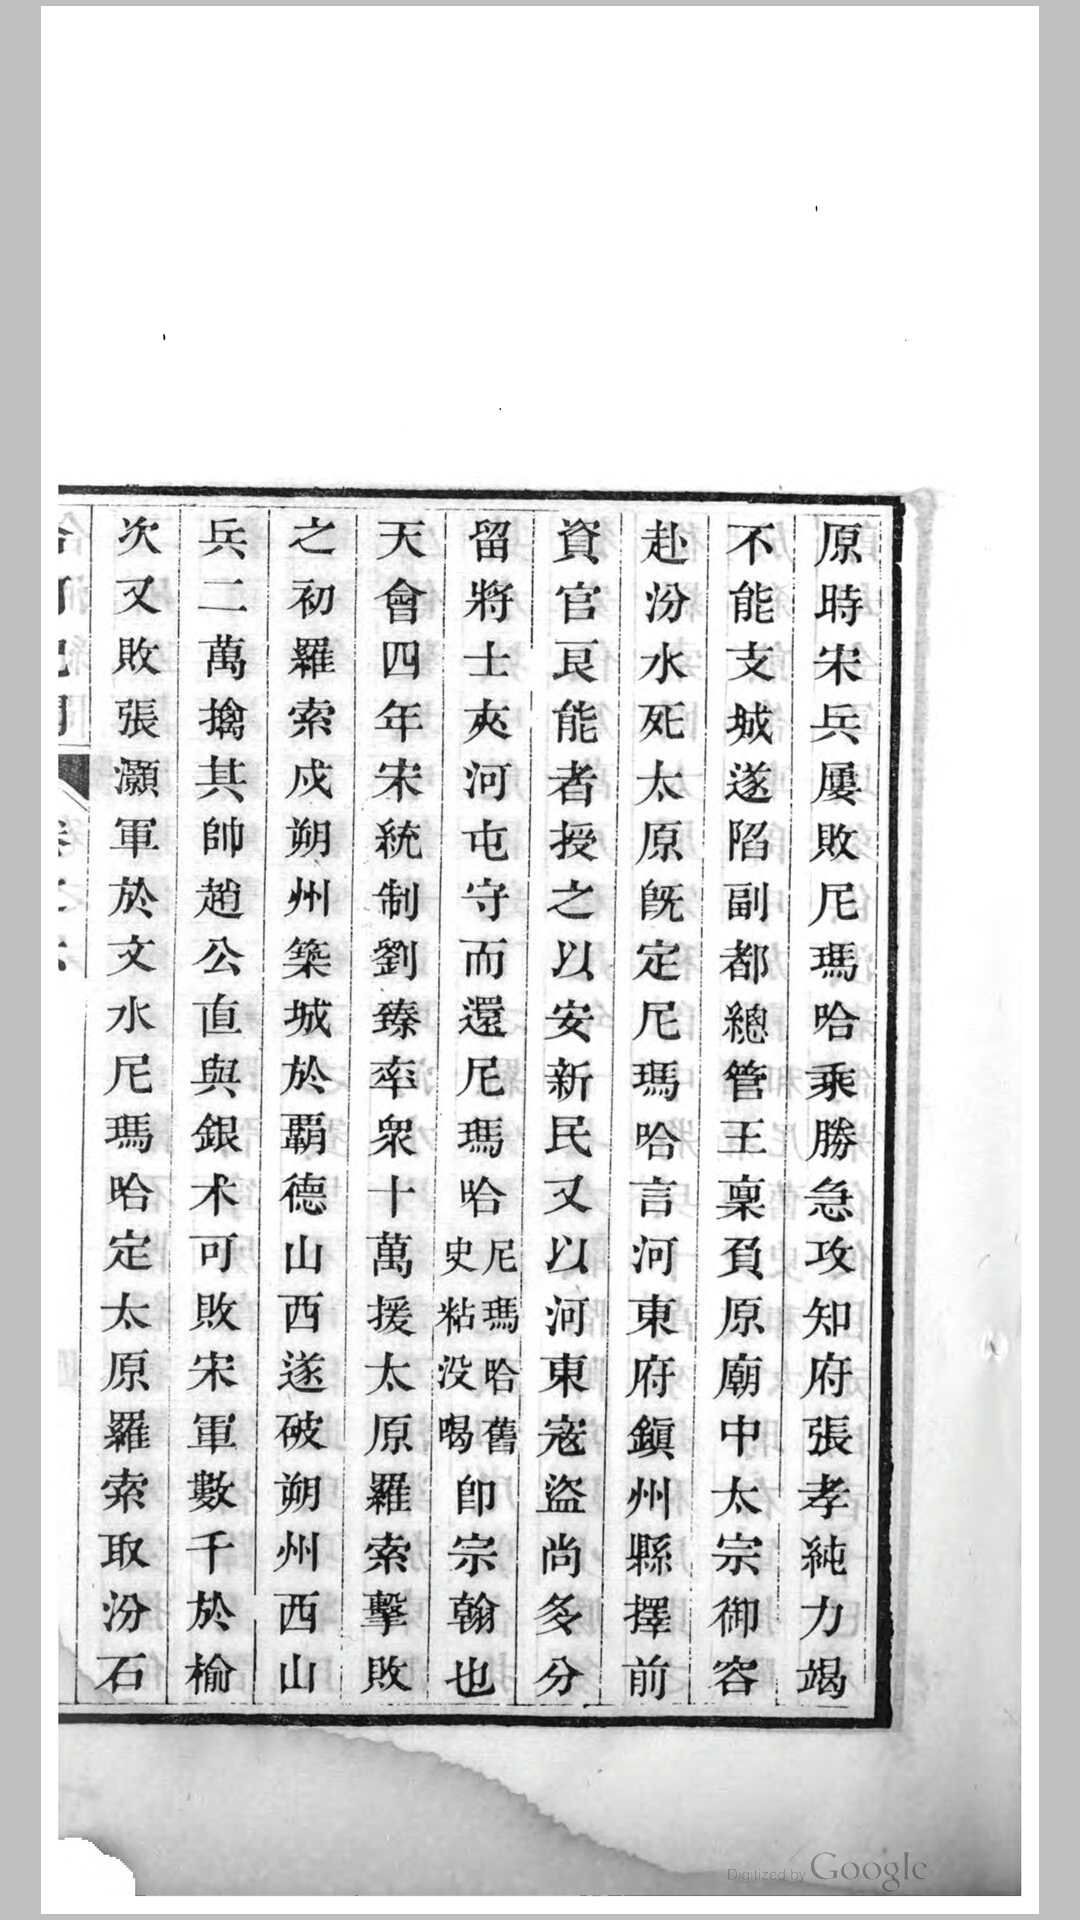 原時宋兵屢敗尼瑪哈乘勝急攻知府張孝純力竭
不能支城遂陷副都總管王稟負原廟中太宗御容
赴汾水死太原旣定尼瑪哈言河東府鎭州縣擇前
資官良能者授之以安新民又以河東寇盜尚多分
留將士夾河屯守而還尼瑪哈尼瑪哈舊史粘没喝卽宗翰也
天會四年宋統制劉臻率衆十萬援太原羅索擊敗
之初羅索戍朔州築城於霸德山西遂破朔州西山
兵二萬擒其帥趙公直與銀术可敗宋軍數千於榆
次又敗張灝軍於文水尼瑪哈定太原羅索取汾石
Digitized by Google